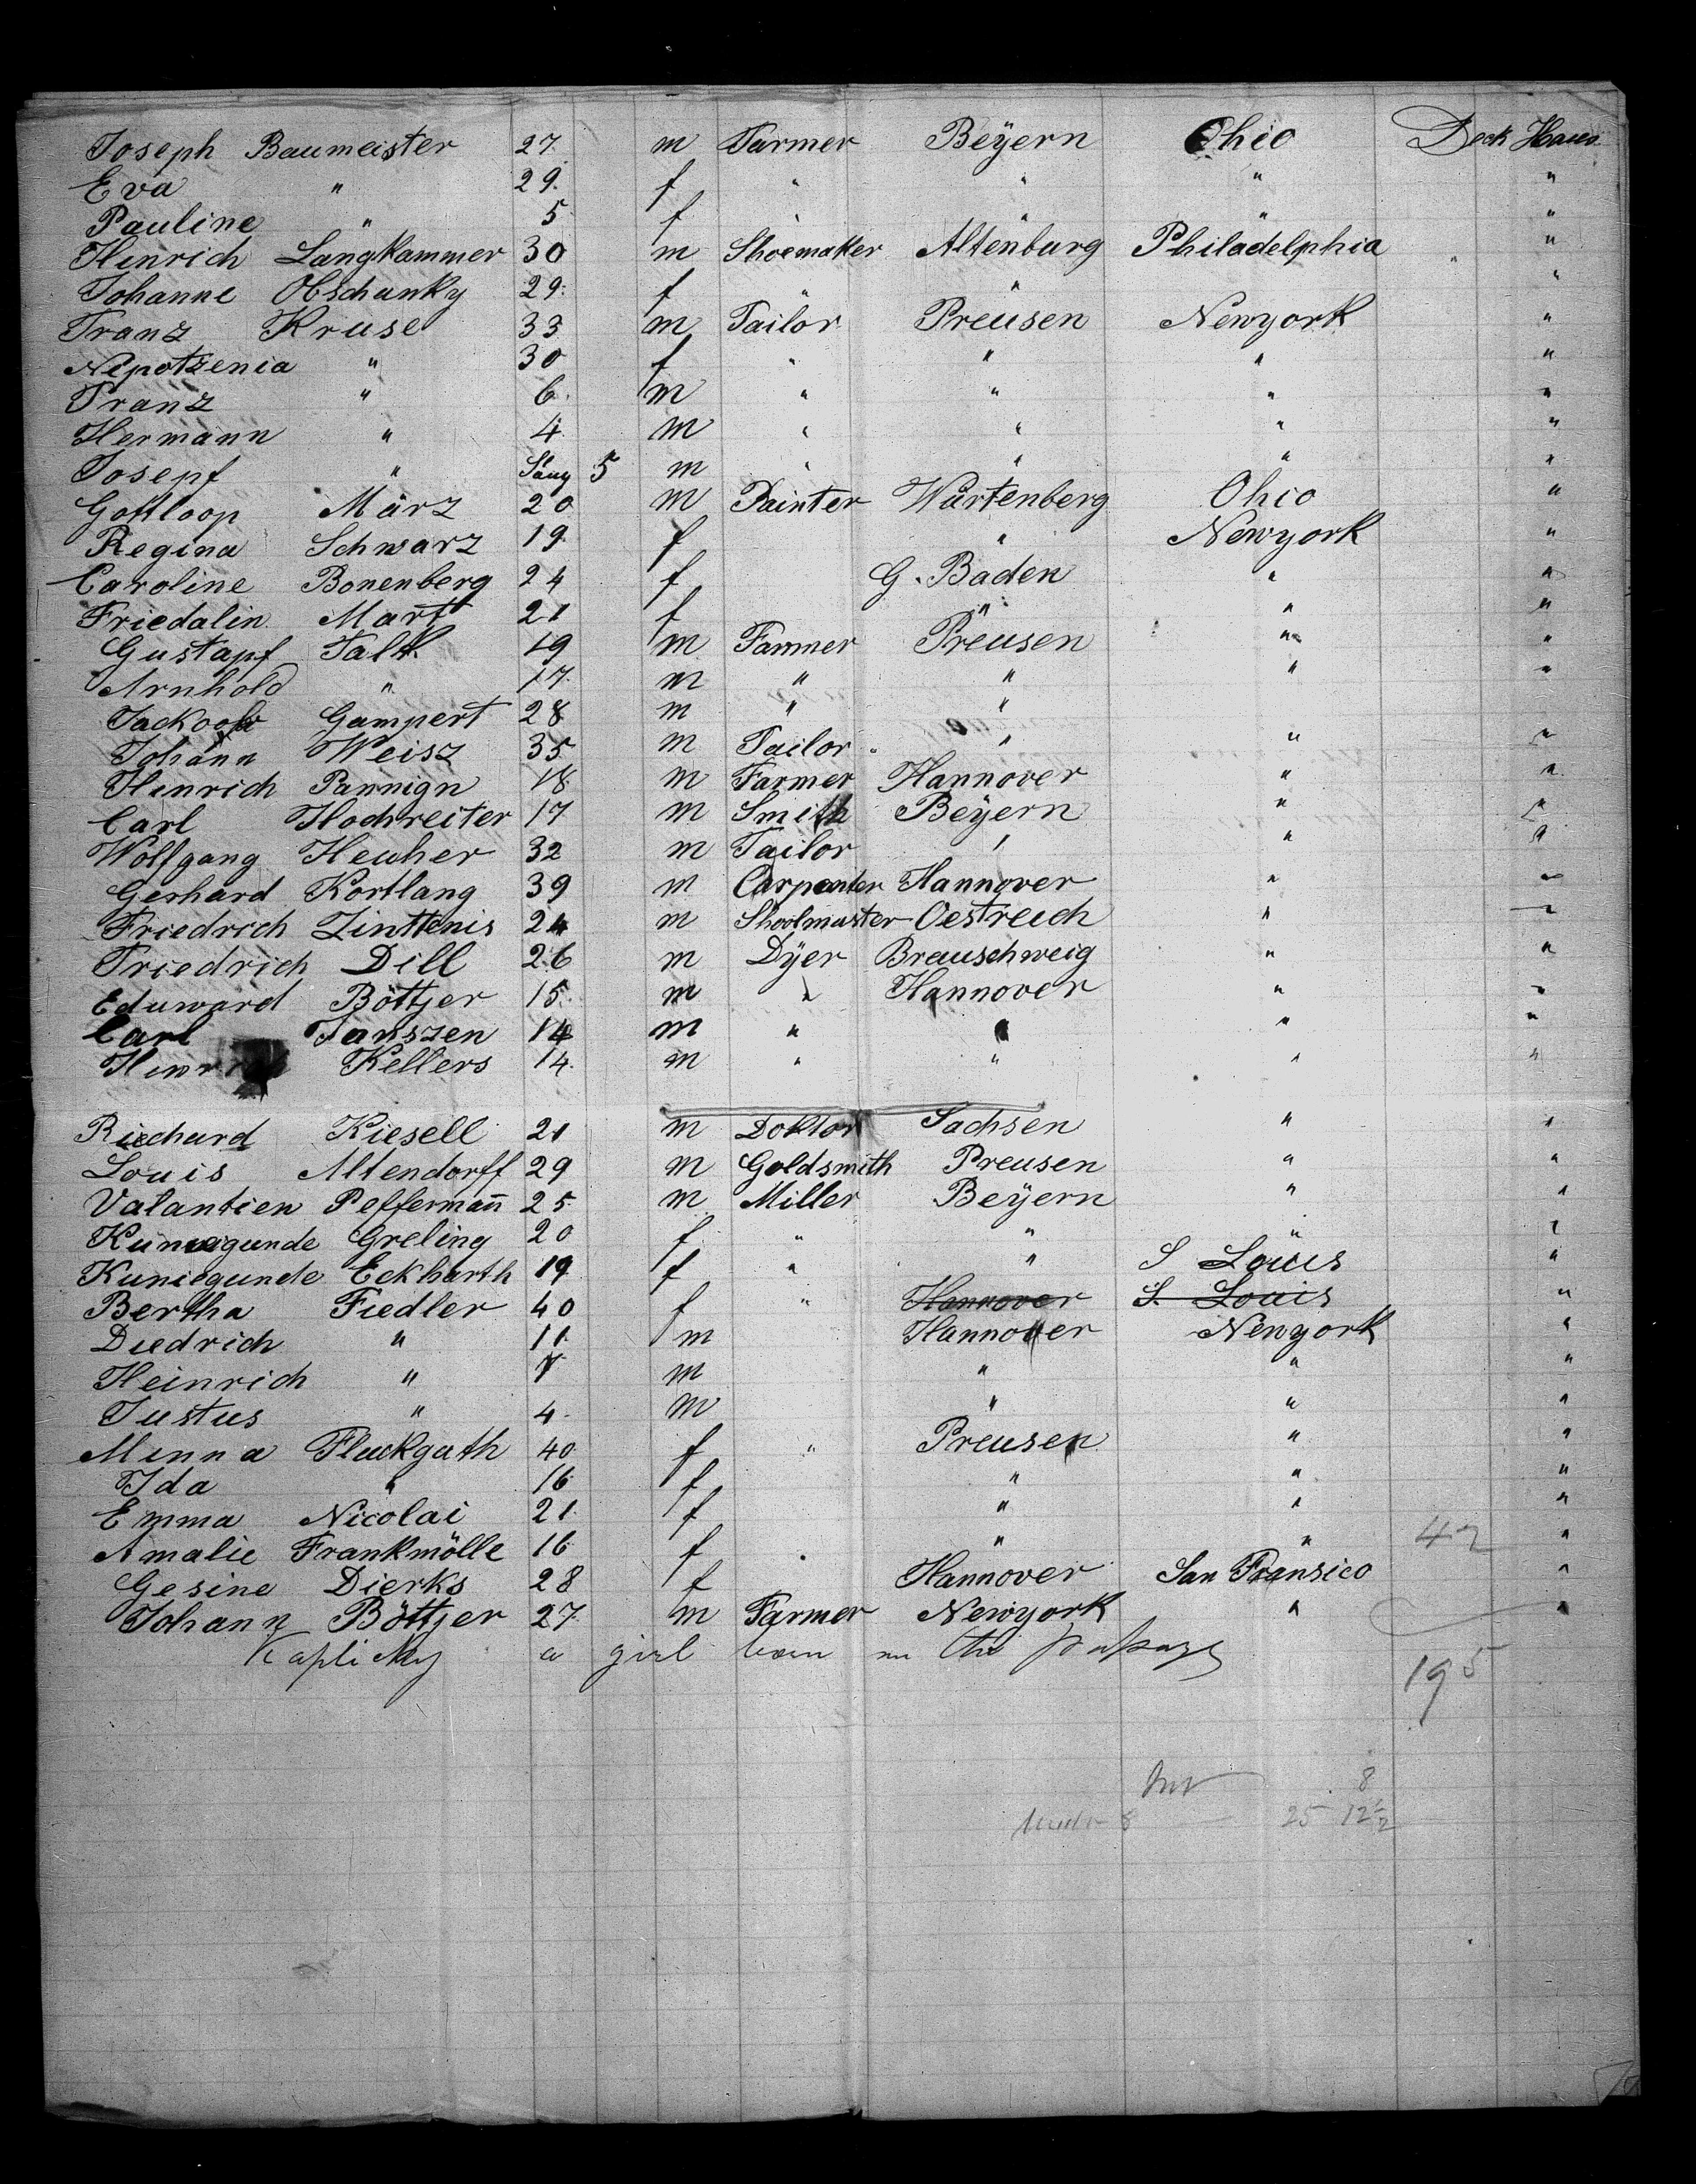 Joseph Baumeister 27. m Farmer Beÿern Ohio Deck Haus
Eva " 29. f " " " "
Pauline " 5 f " " " "
Hinrich Langkammer 30 m Shoemaker Altenburg Philadelphia "
Johanne Obschanky 29. f " " "
Franz Kruse 33 m Tailor Preusen Newyork "
Nepotzenia " 30 f " " " "
Franz " 6. m " " " "
Hermann " 4. m " " " "
Josepf " Säug 5 m " " " "
Gottloop März 20 m Painter Würtenberg Ohio "
Regina Schwarz 19. f " Newyork "
Caroline Bonenberg 24 f G. Baden " "
Friedalin Mart 21 f " " "
Gustapf Falk 19 m Farmer Preusen " "
Arnhold " 17. m " " " "
Jackoob Gampert 28 m " "
Johann Weisz 35 m Tailor " " "
Hinrich Pannign 18. m Farmer Hannover " "
Carl Hochreiter 17 m Smith Beÿern " "
Wolfgang Heuher 32 m Tailor " " "
Gerhard Kortlang 39 m Carpenter Hannover " "
Friedrich Zinttenis 24 m Shoolmaster Oestreich " "
Friedrich Dill 26 m Dÿer Brauschweig " "
Eduward Böttjer 15. m " Hannover " "
Carl Janszen 14 m " " " "
Kellers 14. m " " " "
Riechard Kiesell 21 m Doktor Sachsen " "
Louis Altendorff 29 m Goldsmith Preusen " "
Valantien Peffermañ 25. m Miller Beÿern " "
Kuniegunde Greling 20 f " " " "
Kuniegunde Eckharth 19 f " " S Louis "
Bertha Fiedler 40 f " Hannover S. Louis "
Diedrich " 11. m Hannover Newyork "
Heinrich " 7 m " " "
Justus " 4. m " " "
Minna Fluckguth 40. f " Preusen " "
Ida " 16 f " " "
Emma Nicolai 21. f " " "
Amalie Frankmölle 16 f " " 42 "
Gesine Dierks 28 f Hannover San Fransico "
Johann Böttjer 27. m Farmer Newyork " "
Kaplicky a girl born on the passage
195
8
under 8 25 12½